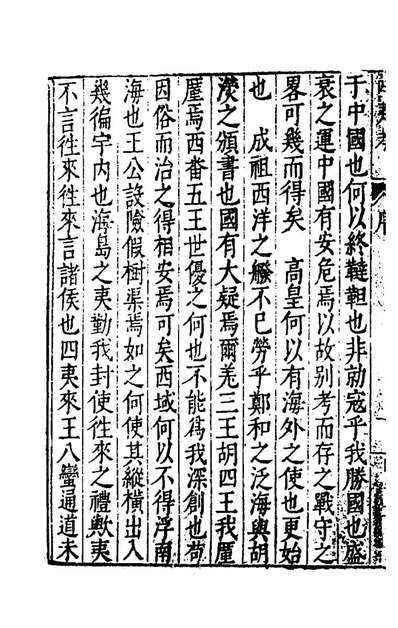 四夷考 序
于中國也何以終韃靼也非勍寇乎我勝國也盛
衰之運中國有安危焉以故别考而存之戰守之
畧可幾而得矣 高皇何以有海外之使也更始
也 成祖西洋之艐不已勞乎鄭和之泛海與胡
濙之頒書也國有大疑焉爾羌三王胡四王我厪
厪焉西番五王世優之何也不能爲我深創也苟
因俗而治之得相安焉可矣西域何以不得浮南
海也王公設險假樹渠焉如之何使其縱横出入
幾徧宇内也海島之夷勤我封使徃來之禮歟夷
不言徃來徃來言諸侯也四夷來王八蠻通道未